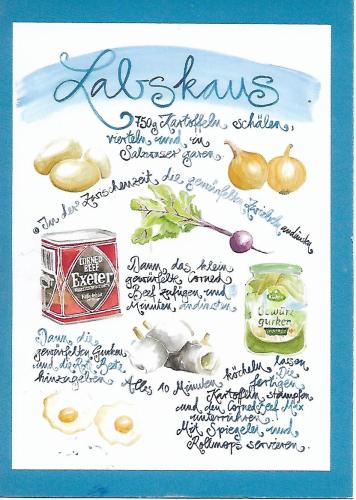 Labskaus
750g Kartoffeln schälen,
vierteln und in
Salzwasser garen.
In der Zwischenzeit die gewürfelten Zwiebeln andünsten
Dann das klein
gewürfelte Corned
Beef zufügen und
Minuten andünsten
CORNED
BEEF
Exeter
Gewürz
gurken
Dann die
gewürfelten Gurken
und die Rote Bete
hinzugeben
Alles 10 Minuten köcheln lassen
Die fertigen
Kartoffeln stampfen
und den Corned Beef Mix
unterrühren.
Mit Spiegelei und
Rollmops servieren.